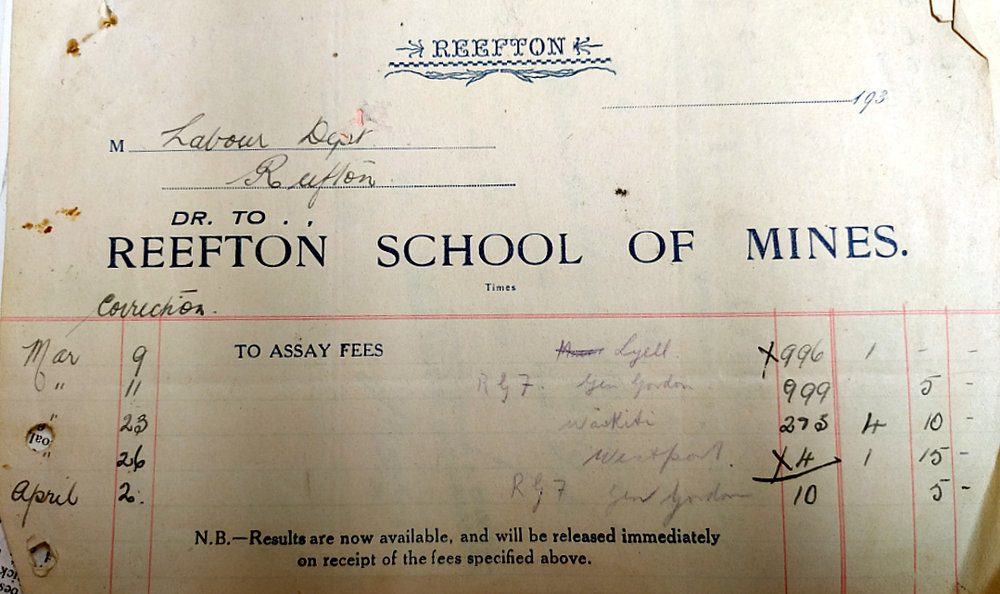 REEFTON
193
M Labour Dept
Reefton
DR. TO . ,
REEFTON SCHOOL OF MINES.
Times
Correction.
Mar 9 TO ASSAY FEES Lyell X996 1 - -
" 11 R G F. Gen Gordon 999 5 -
" 23 273 4 10 -
" 26 Westport X4 1 15 -
April 2. R G F Gen Gordon 10 5 -
N.B.—Results are now available, and will be released immediately
on receipt of the fees specified above.
oal